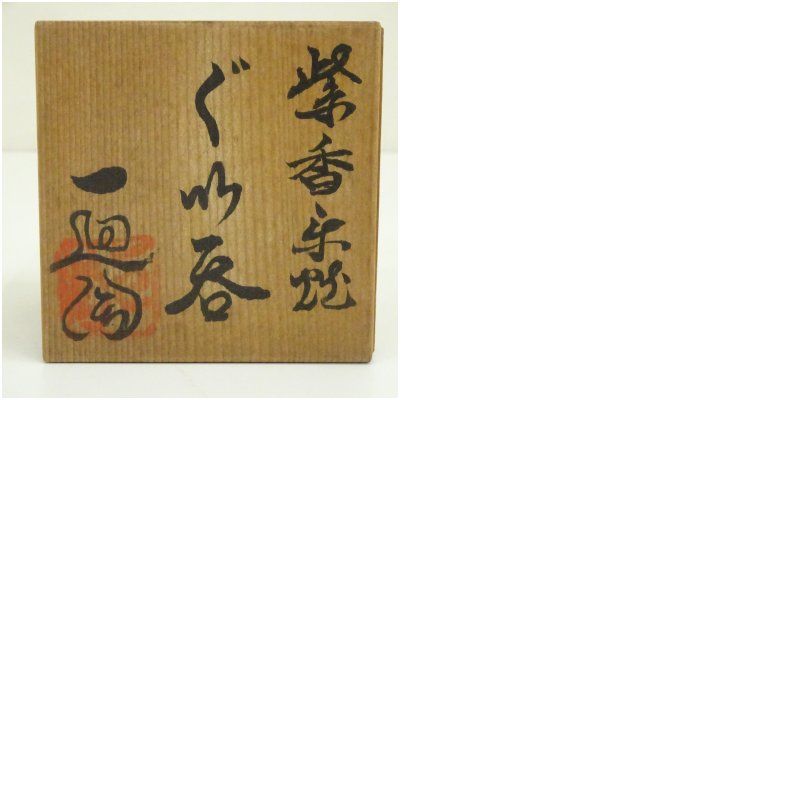 紫香楽焼
ぐい呑
一廻陶